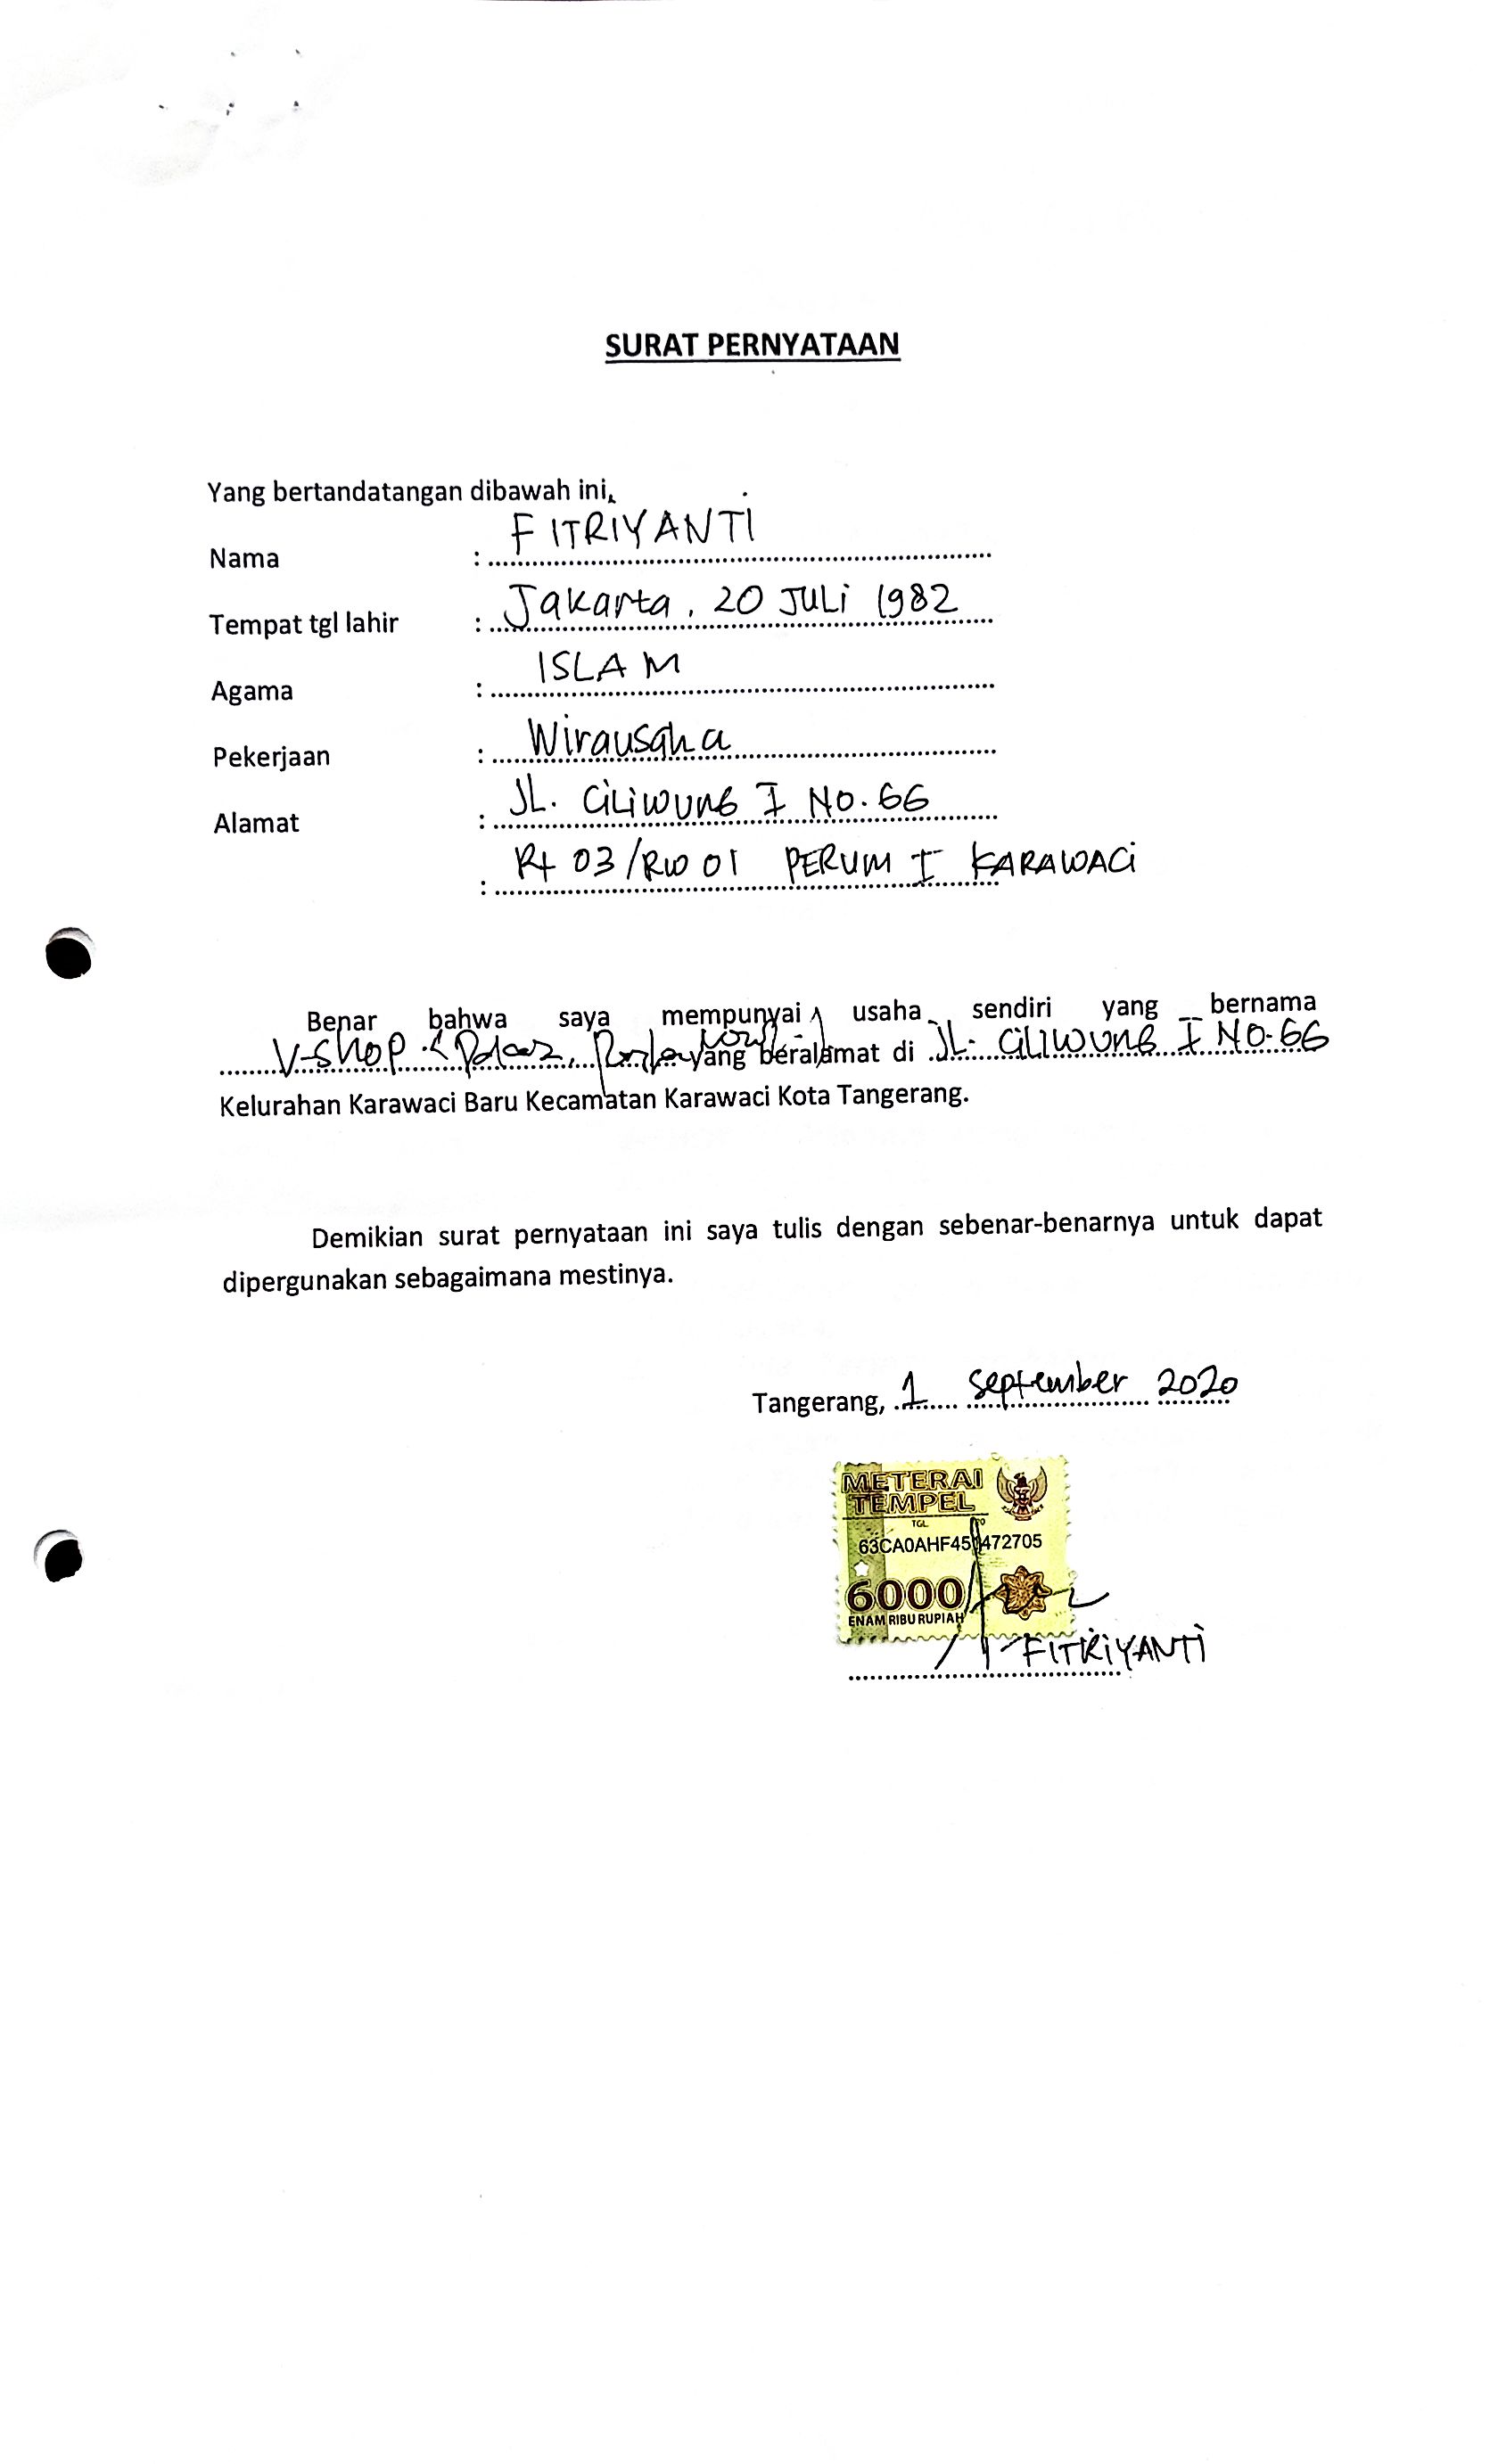 SURAT PERNYATAAN
Yang bertandatangan dibawah ini,
Nama : FITRIYANTI
Tempat tgl lahir : Jakarta, 20 JULI 1982
Agama : ISLAM
Pekerjaan : Wirausaha
Alamat : JL. CILIWUNG I NO. 66
: Rt 03/RW 01 PERUM I KARAWACI
Benar bahwa saya mempunyai usaha sendiri yang bernama
V-SHOP yang beralamat di JL. CILIWUNG I NO. 66
Kelurahan Karawaci Baru Kecamatan Karawaci Kota Tangerang.
Demikian surat pernyataan ini saya tulis dengan sebenar-benarnya untuk dapat
dipergunakan sebagaimana mestinya.
Tangerang, 1 September 2020
METERAI
TEMPEL
TGL. 20
6000
ENAM RIBU RUPIAH
FITRIYANTI